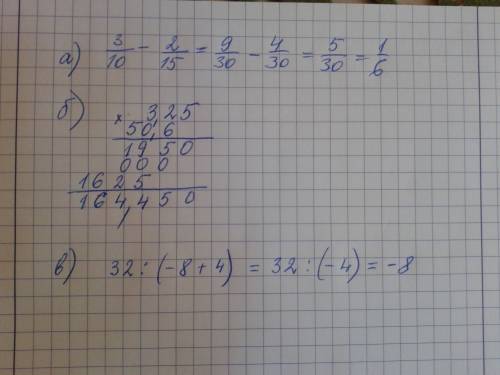 а) 3/10 - 2/15 = 9/30 - 4/30 = 5/30 = 1/6
б)
× 3,25
50,6
1950
000
1625
164,450
в) 32 : (-8 + 4) = 32 : (-4) = -8